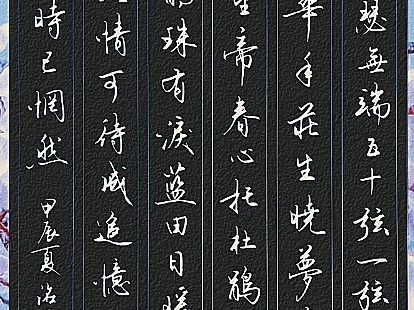 瑟無端五十弦一弦
華年莊生曉夢
望帝春心托杜鵑
珠有淚藍田日暖
情可待成追憶
時已惘然 甲辰夏